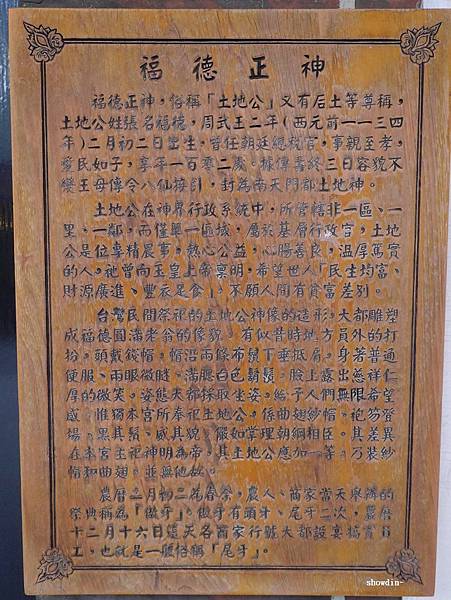 福德正神
福德正神，俗稱「土地公」又有后土等尊稱，
土地公姓張名福德，周武王二年（西元前一一三四
年）二月初二日出生，曾任朝廷總稅官，事親至孝，
愛民如子，享年一百零二歲。據傳壽終三日容貌不
變王母傳令八仙接引，封為南天門都土地神。
土地公在神界行政系統中，所管轄非一區、一
里、一鄰，而僅單一區域，屬於基層行政官，土地
公是位專精農事，熱心公益，心腸善良，温厚篤實
的人。祂曾向玉皇上帝稟明，希望世人「民生均富、
財源廣進、豐衣足食」，不願人間有貧富差別。
台灣民間祭祀的土地公神像的造形，大都雕塑
成福德圓滿老翁的像貌，有似昔時地方員外的打
扮。頭戴錢帽。帽沿兩條布鬚下垂抵肩。身著普通
便服、兩眼微瞇。滿腮白色鬍鬚。臉上露出慈祥仁
厚的微笑。姿態大都採取坐姿。給予人們無限希望
感。惟獨本宮所奉祀土地公。係曲翅紗帽。袍笏登
場。黑其鬚、威其貌。儼如掌理朝綱相臣。其差異
在本宮主祀神明為帝。其土地公應加一等。乃裝紗
帽和曲翅。並無他故。
農曆二月初二為春祭，農人、商家當天舉濟的
祭典稱為「做牙」。做牙有頭牙、尾牙二次，農曆
十二月十六日這天各商家行號大都設宴犒賞員
工，也就是一般俗稱「尾牙」。
showdin-